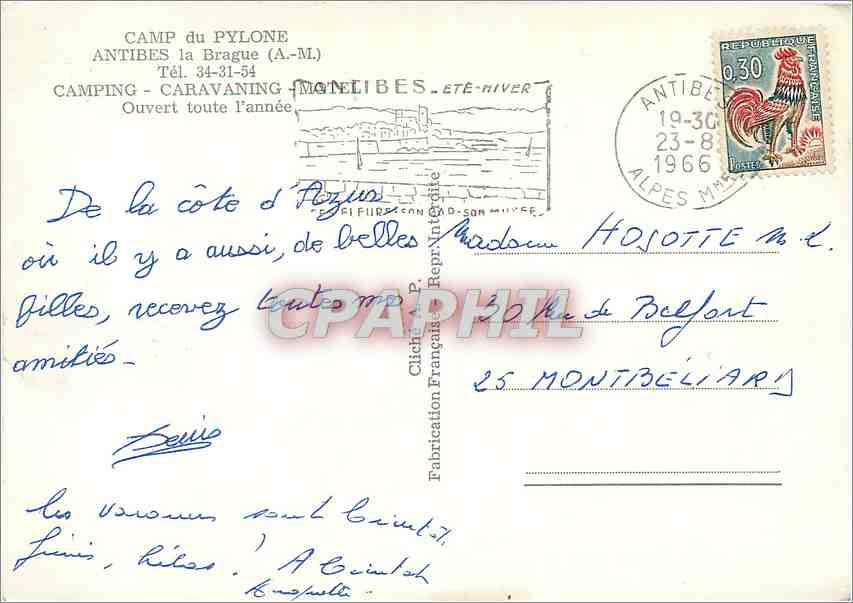 CAMP du PYLONE
ANTIBES la Brague (A.-M.)
Tél. 34-31-54
CAMPING - CARAVANING - MOTEL
Ouvert toute l'année
ANTIBES - ETE-HIVER
SES FLEURS SON CAP-SON MUSEE
ANTIBES
19-30
23-8
1966
ALPES Mmes
REPUBLIQUE FRANÇAISE
0,30
POSTES
De la côte d'Azur
où il y a aussi, de belles
filles, recevez toutes mes
amitiés-
Denis
Les vacances sont bientôt
finis, hélas! A bientôt
Madame HOSOTTE M. L.
30 Rue de Belfort
25 MONTBÉLIARD
Cliché A. P.
Fabrication Française - Repr. Interdite
CPAPHIL